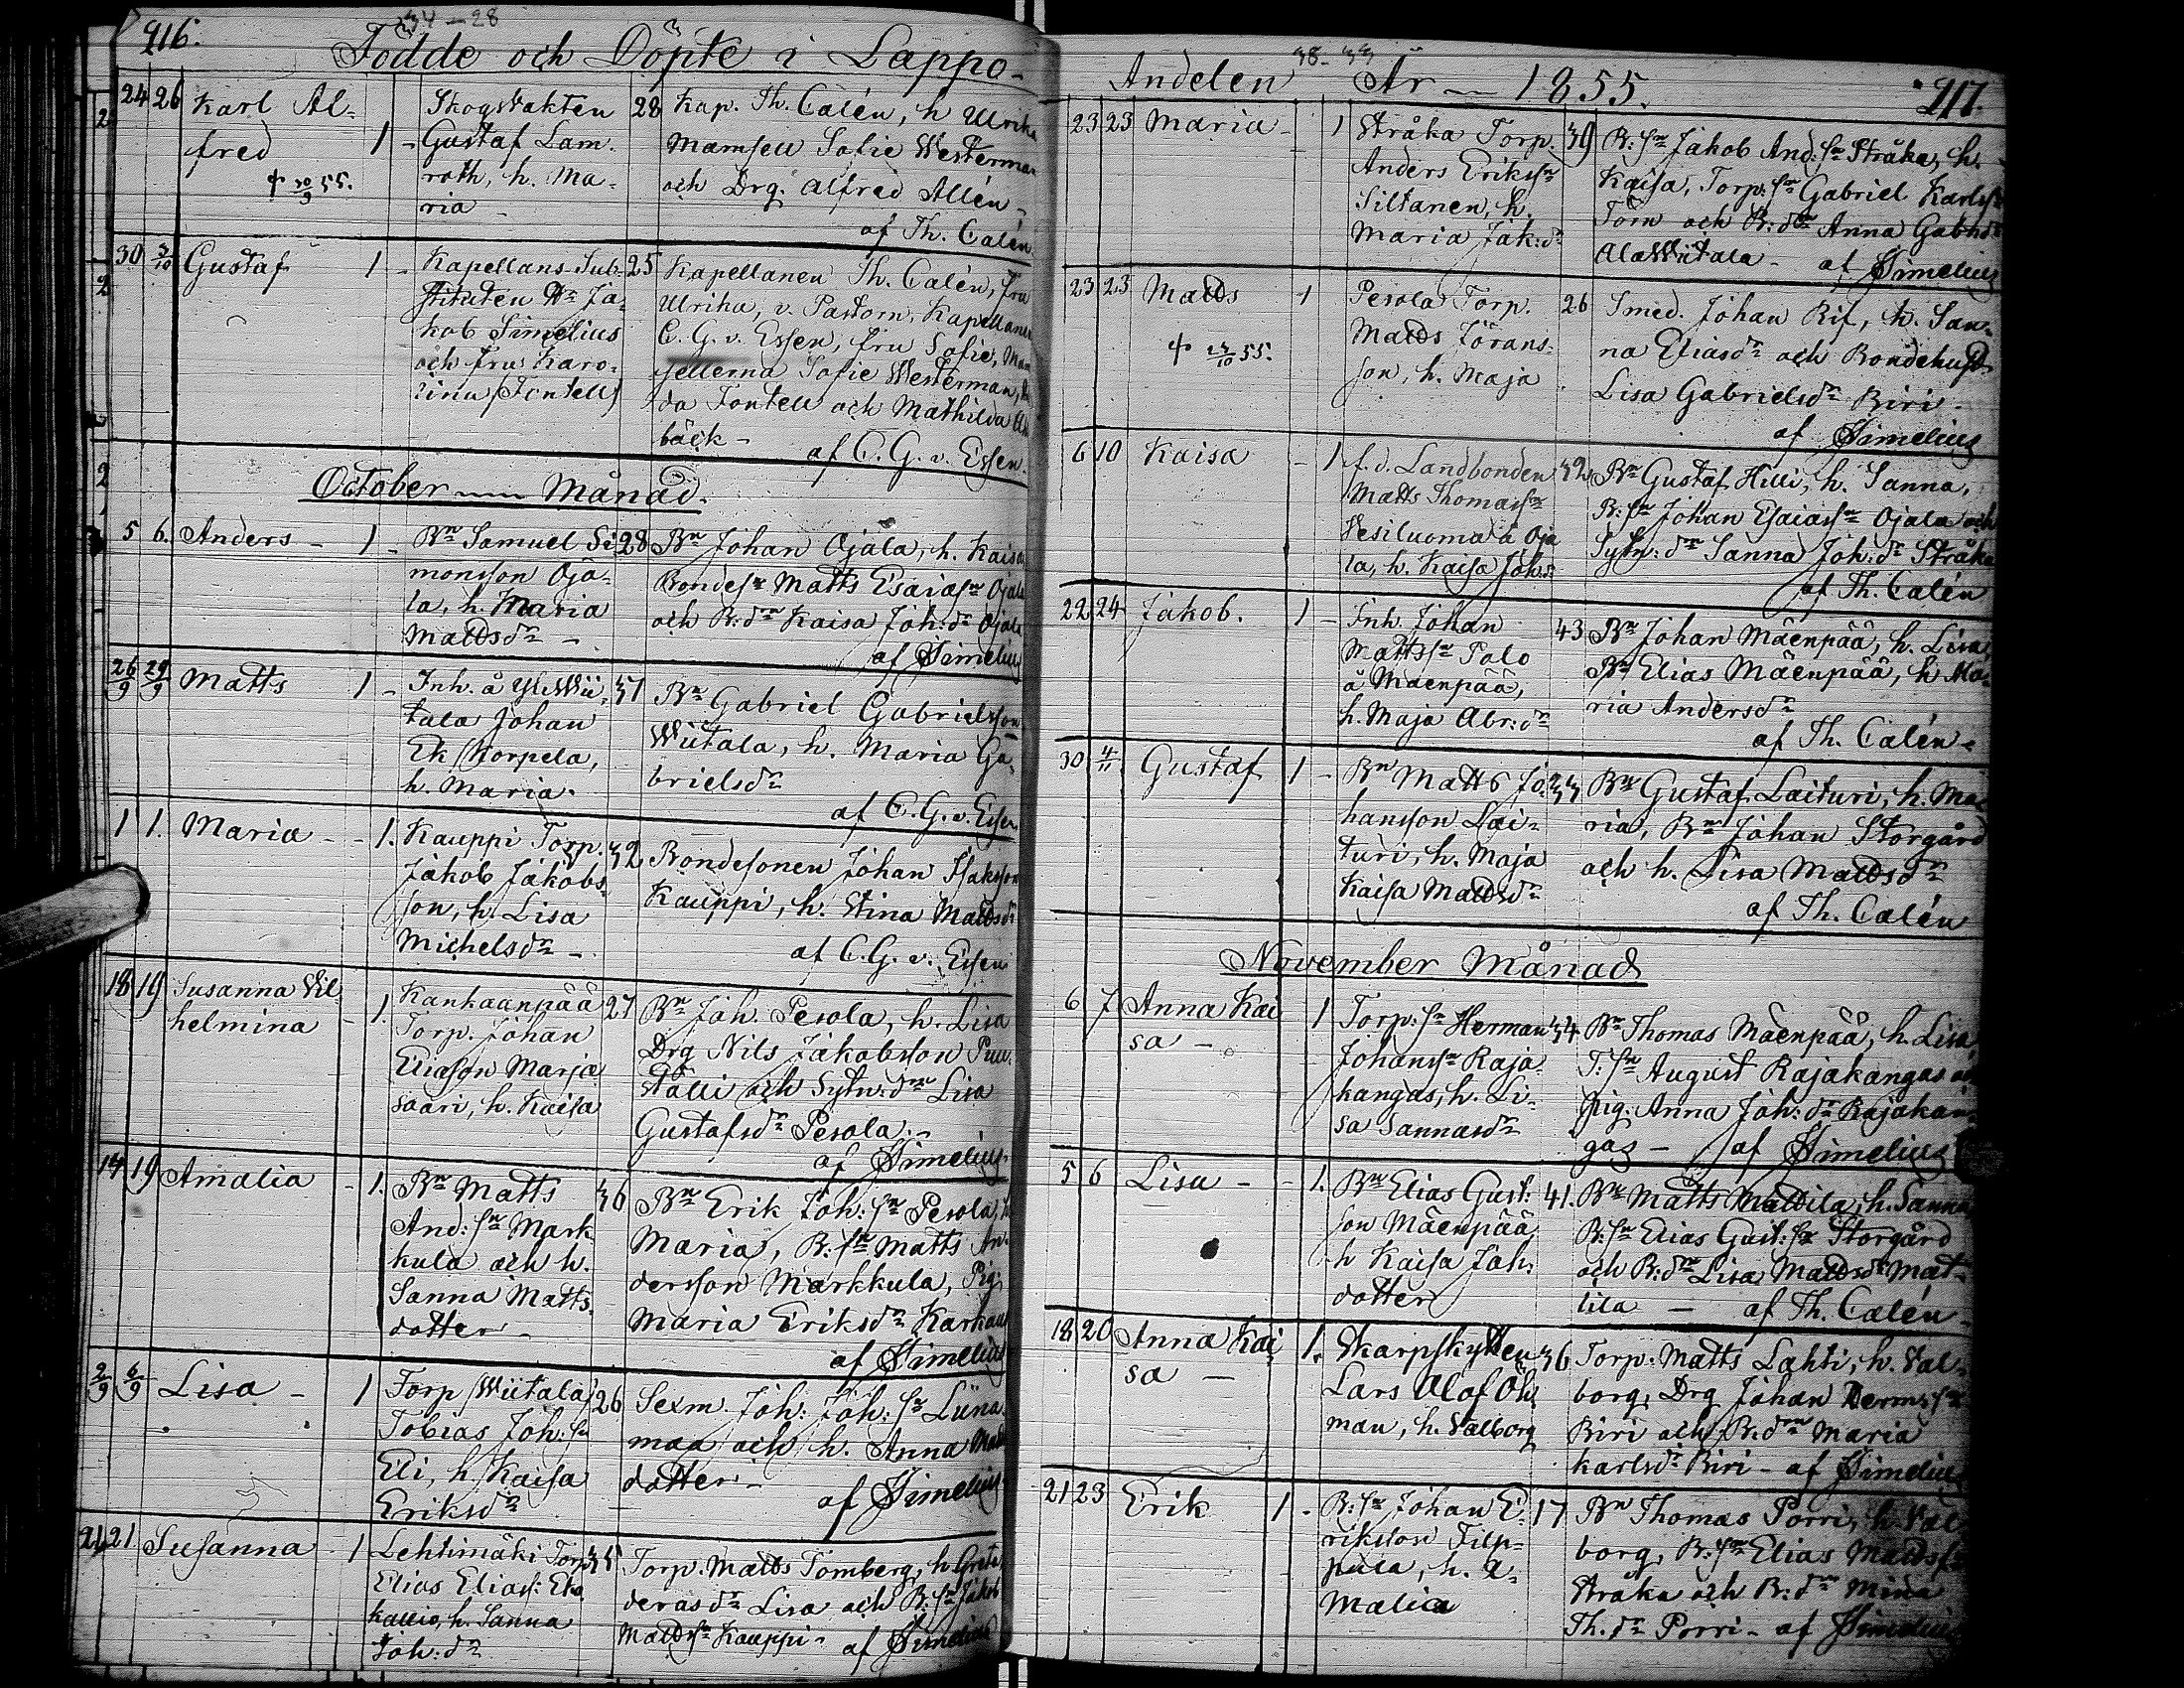 916.
34-28
Födde och Döpte i Lappo-
24 26 Karl Al-
fred
1 -
+ 30/9 55.
Skogsvakten
Gustaf Lam-
roth, h. Ma-
ria -
28
Kap. Th. Calén, h Ulrika
Mamsell Sofie Westerman
och Drg. Alfred Allén -
af Th. Calén.
30 3/10 Gustaf 1 -
Kapellans-Sub-
stituten
Jakob Simelius
och fru Karo-
lina (Fontell)
25
Kapellanen Th. Calén, fru
Ulrika, v. Pastorn, Kapellanen
C. G. v. Essen, fru Sofie, Mam
sellerna Sofie Westerman,
da Fontell och Mathilda
bäck -
af C. G. v. Essen.
October Månad.
5 6. Anders - 1 -
Bn Samuel Si
monsson Oja-
la, h. Maria
Mattsdr -
28
Bn Johan Ojala, h. Kaisa
Bondesn Matts Esaiasn Ojala
och B:dn Kaisa Joh:dr Ojala
af Simelius
26/9 29/9 Matts 1 -
Inh. å Yli Wii-
tala Johan
Ek (Korpela,
h. Maria.
37
Bn Gabriel Gabrielsson
Wiitala, h. Maria Ga-
brielsdr
af C. G. v. Essen
1 1. Maria - - 1.
Kauppi Torp.
Jakob Jakobs-
son, h. Lisa
Michelsdr -
32
Bondesonen Johan Isaksson
Kauppi, h. Stina Mattsdr
af C. G. v. Essen
18 19 Susanna Vil-
helmina - 1.
Kanhaanpää
Torp. Johan
Eliasson Marja
saari, h. Kaisa
27
Bn Joh. Pesola, h. Lisa
Drg Nils Jakobsson Puu-
stalli och Sytn:dn Lisa
Gustafsdr Pesola. -
af Simelius.
14 19 Amalia - 1.
Bn Matts
And:sn Mark-
kula och h.
Sanna Matts-
dotter -
36
Bn Erik Joh:sn Pesola, h
Maria, B:sn Matts An-
dersson Markkula, Pig.
Maria Eriksdr Karhau
af Simelius
2/9 6/9 Lisa - 1
Torp (Wiitala)
Tobias Joh:sn
Eli, h. Kaisa
Eriksdr
26
Sexm. Joh: Joh:sn Luna-
maa och h. Anna Matts
dotter -
af Simelius
21 21 Susanna - 1
Lehtimäki Torp
Elias Elias:
kallio, h. Sanna
Joh:dr
35
Torp. Matts Tomberg, h Greta
derasdr Lisa och B:sn Jakob
Mattssn Kauppi - af Simelius
38-33
Andelen År 1855.
917.
23 23 Maria - 1
Stråka Torp.
Anders Erikssn
Siltanen, h.
Maria Jak:dr
39
B:sn Jakob And:sn Stråka, h.
Kaisa, Torp:sn Gabriel Karlssn
Törn och B:dn Anna Gabr:dr
AlaWiitala - af Simelius
23 23 Matts 1
+ 24/10 55.
Pesola Torp.
Matts Jörans-
son, h. Maja
26
Smed. Johan Rif, h. San-
na Eliasdr och Bondehust
Lisa Gabrielsdr Biri -
af Simelius
6 10 Kaisa - 1
f. d. Landbonden
Matts Thomassn
Vesiluoma å Oja
la, h. Kaisa Joh:
32
Bn Gustaf Hilli, h. Sanna,
B:sn Johan Esaiassn Ojala och
Sytn:dn Sanna Joh:dr Stråka
af Th. Calén
22 24 Jakob. 1 -
Inh. Johan
Mattssn Palo
å Mäenpää,
h. Maja Abr:dr
43
Bn Johan Mäenpää, h. Lisa,
Bn Elias Mäenpää, h. Ma-
ria Andersdr
af Th. Calén -
30 4/11 Gustaf 1 -
Bn Matts Jo-
hansson Lai-
turi, h. Maja
Kaisa Mattsdr
33
Bn Gustaf Laituri, h. Ma-
ria, Bn Johan Storgård
och h. Lisa Mattsdr
af Th. Calén
November Månad
6 7 Anna Kai
sa - 1
Torp:sn Herman
Johanssn Raja-
kangas, h. Li-
sa Sannasdr
34
Bn Thomas Mäenpää, h. Lisa
T:sn August Rajakangas och
pig. Anna Joh:dr Rajakan-
gas - af Simelius
5 6 Lisa - - 1.
Bn Elias Gust:
son Mäenpää
h Kaisa Joh:
dotter
41.
Bn Matts Mattila, h. Sanna
B:sn Elias Gust:sn Storgård
och B:dn Lisa Mattsdr Mat-
tila - af Th. Calén
18 20 Anna Kai
sa - 1.
Skarpskytten
Lars Olof Öh-
man, h. Valborg
36
Torp. Matts Lahti, h. Val-
borg, Drg Johan Herm:sn
Biri och B:dn Maria
Karlsdr Biri - af Simelius
21 23 Erik 1 -
B:sn Johan E-
riksson Filp-
pula, h. A-
malia
17
Bn Thomas Porri, h. Val-
borg, B:sn Elias Mattssn
Stråka och B:dn Mina
Th.dr Porri - af Simelius